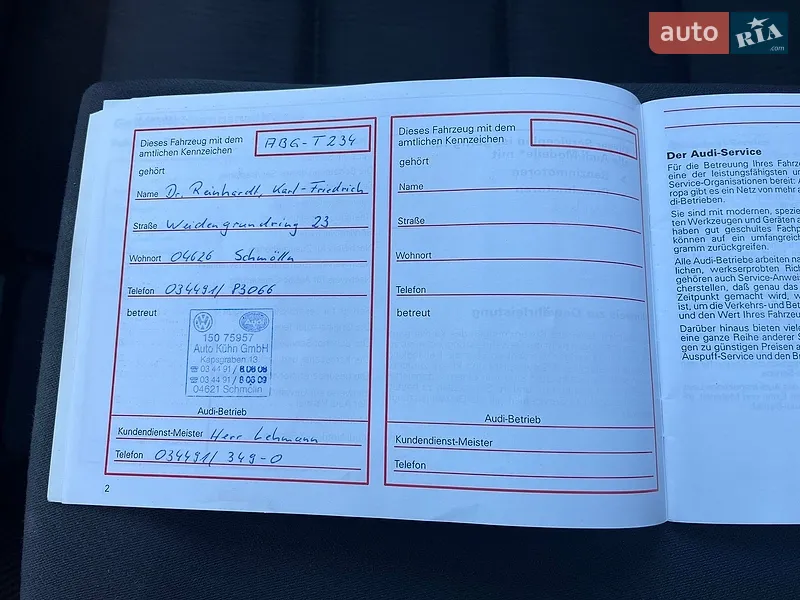 auto RIA .com
Dieses Fahrzeug mit dem
amtlichen Kennzeichen
ABG-T234
gehört
Name Dr. Reinhardt, Karl-Friedrich
Straße Weidengrundring 23
Wohnort 04626 Schmölln
Telefon 034491/ 83066
betreut
150 75957
Auto Kühn GmbH
Kapsgraben 13
☎ 03 44 91 /
☎ 03 44 91 /
04621 Schmölln
Audi-Betrieb
Kundendienst-Meister Herr Lehmann
Telefon 034491/ 349-0
2
Dieses Fahrzeug mit dem
amtlichen Kennzeichen
gehört
Name
Straße
Wohnort
Telefon
betreut
Audi-Betrieb
Kundendienst-Meister
Telefon
Der Audi-Service
Für die Betreuung Ihres Fahrze
eine der leistungsfähigsten u
Service-Organisationen bereit:
ropa gibt es ein Netz von mehr a
di-Betrieben.
Sie sind mit modernen, spezie
ten Werkzeugen und Geräten a
haben gut geschultes Fachp
können auf ein umfangreich
gramm zurückgreifen.
Alle Audi-Betriebe arbeiten na
lichen, werkserprobten Rich
gehören auch Service-Anwei
cherstellen, daß genau das
Zeitpunkt gemacht wird, w
ist, um die Verkehrs- und Bet
und den Wert Ihres Fahrzeu
Darüber hinaus bieten viele
eine ganze Reihe anderer S
gen zu günstigen Preisen a
Auspuff-Service und den Br